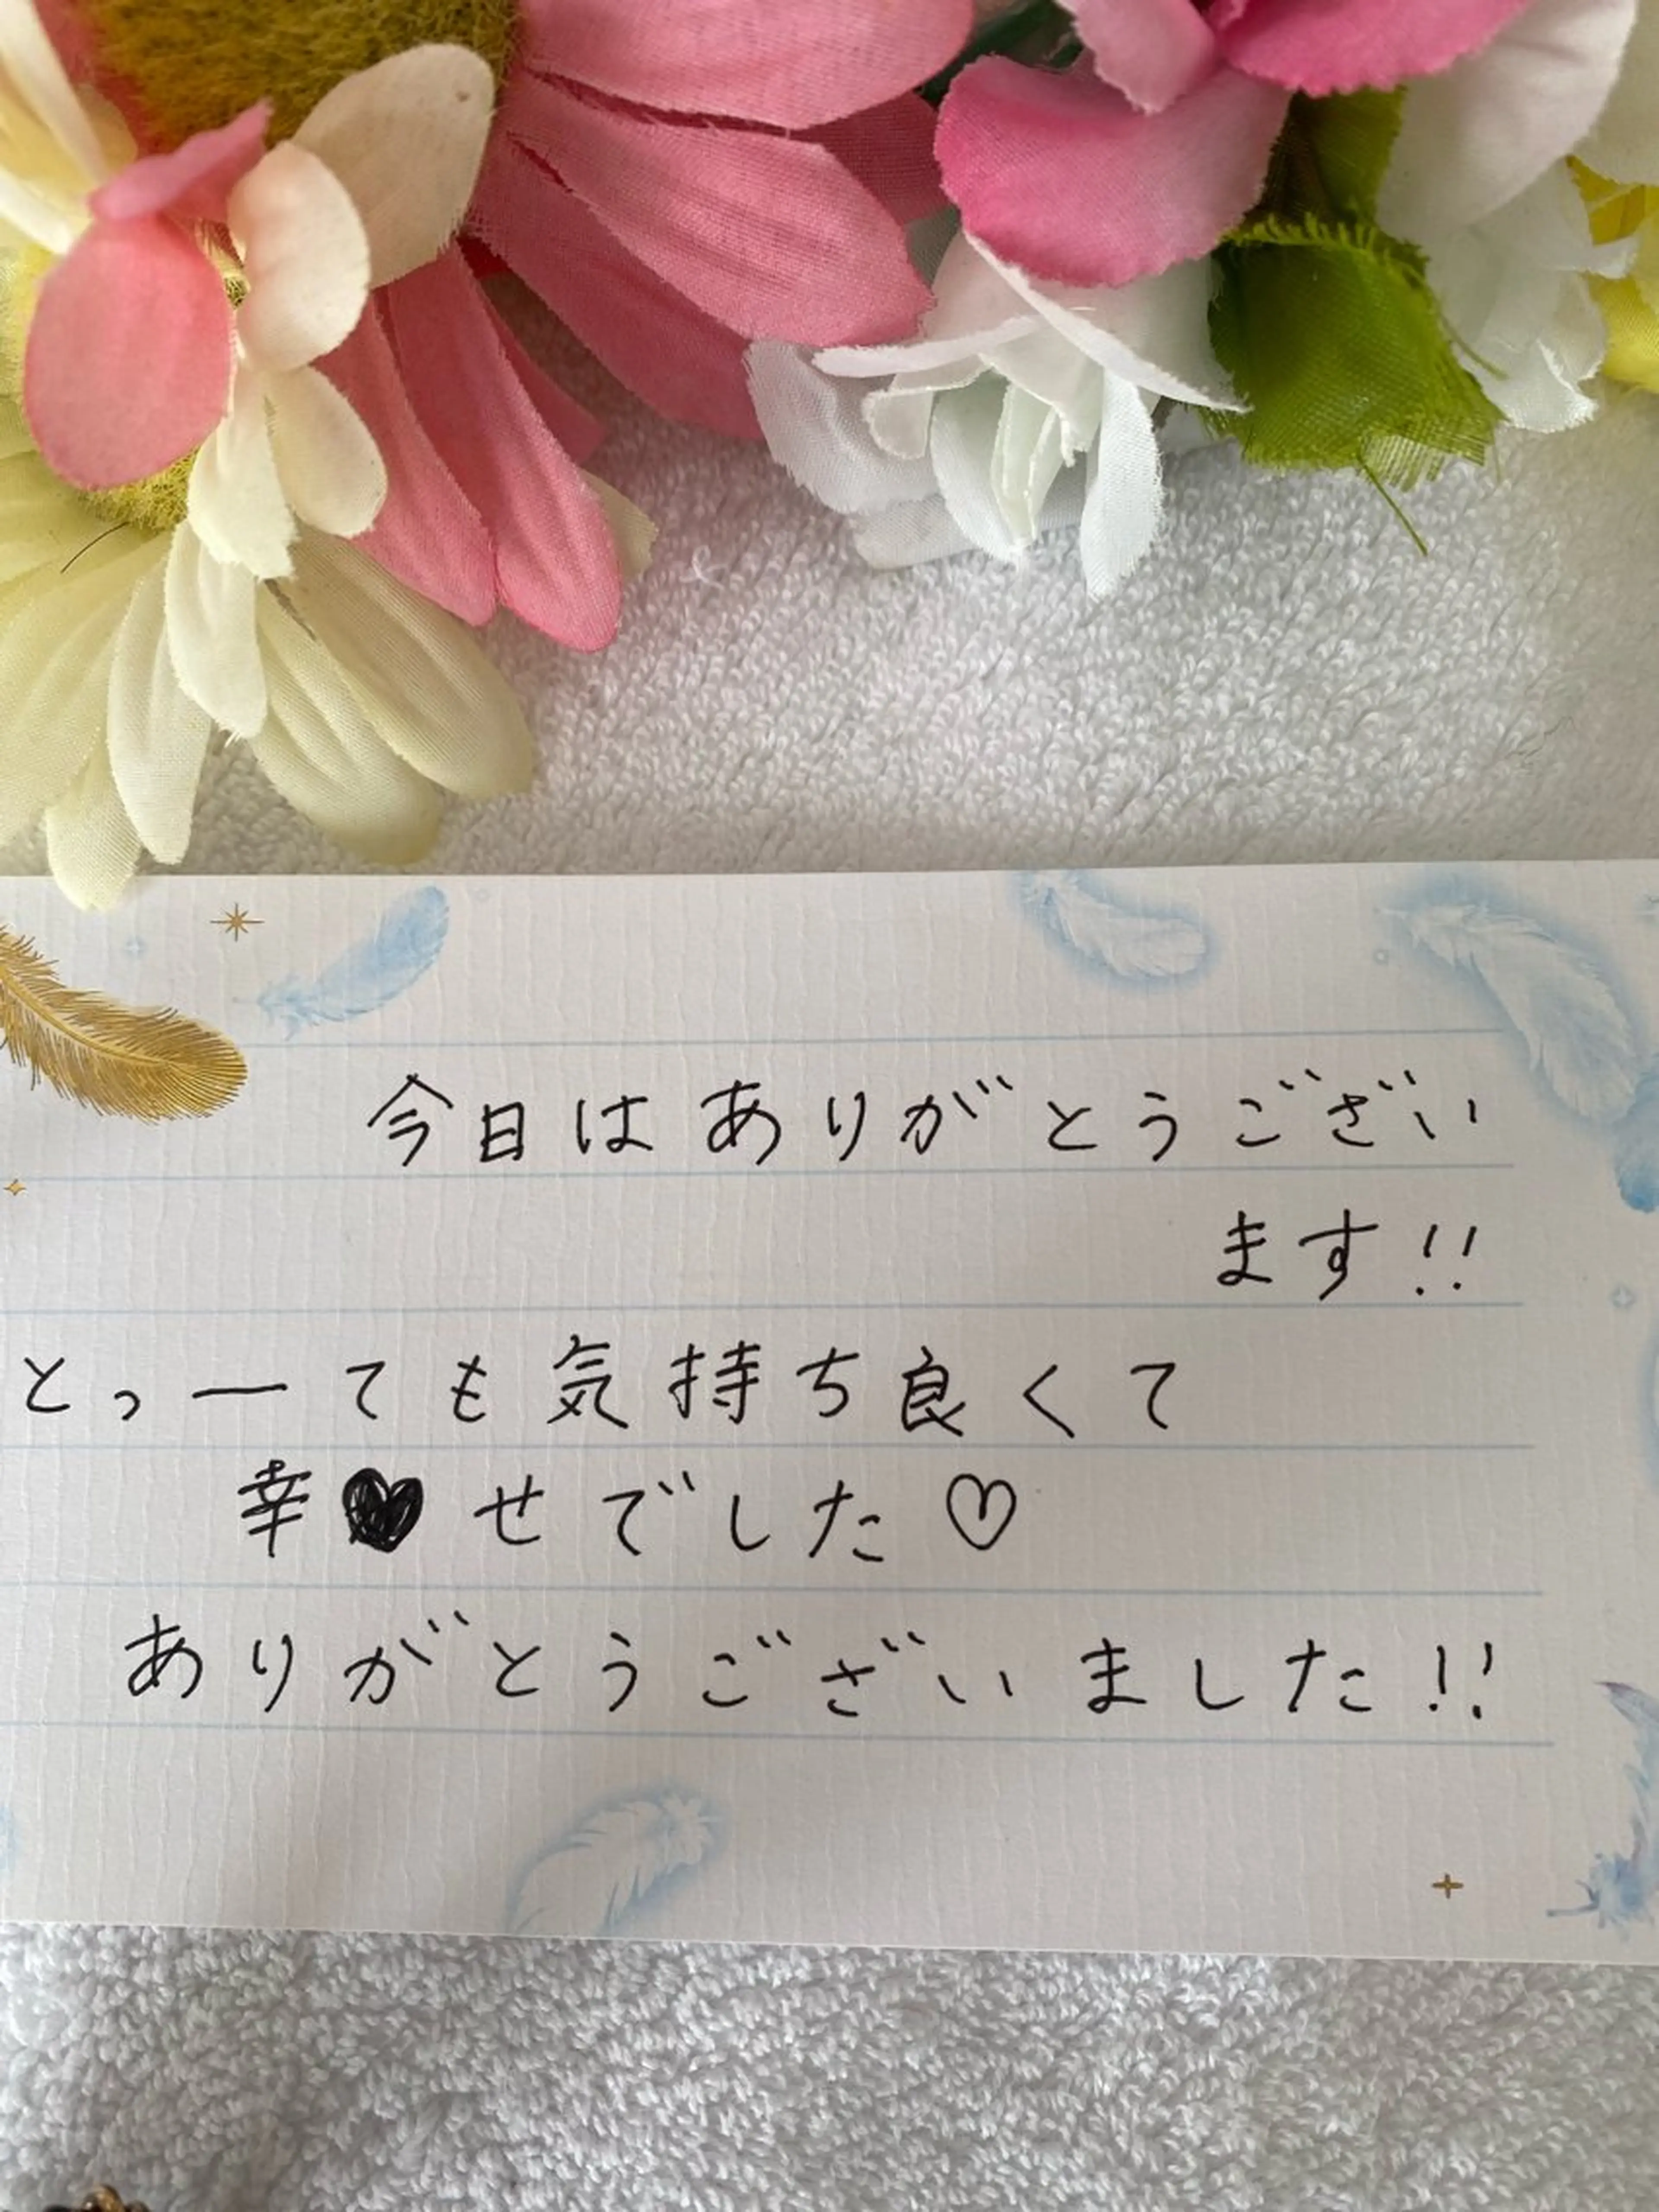 今日はありがとうござい
ます!!
とっーても気持ち良くて
幸♥せでした♡
ありがとうございました!!